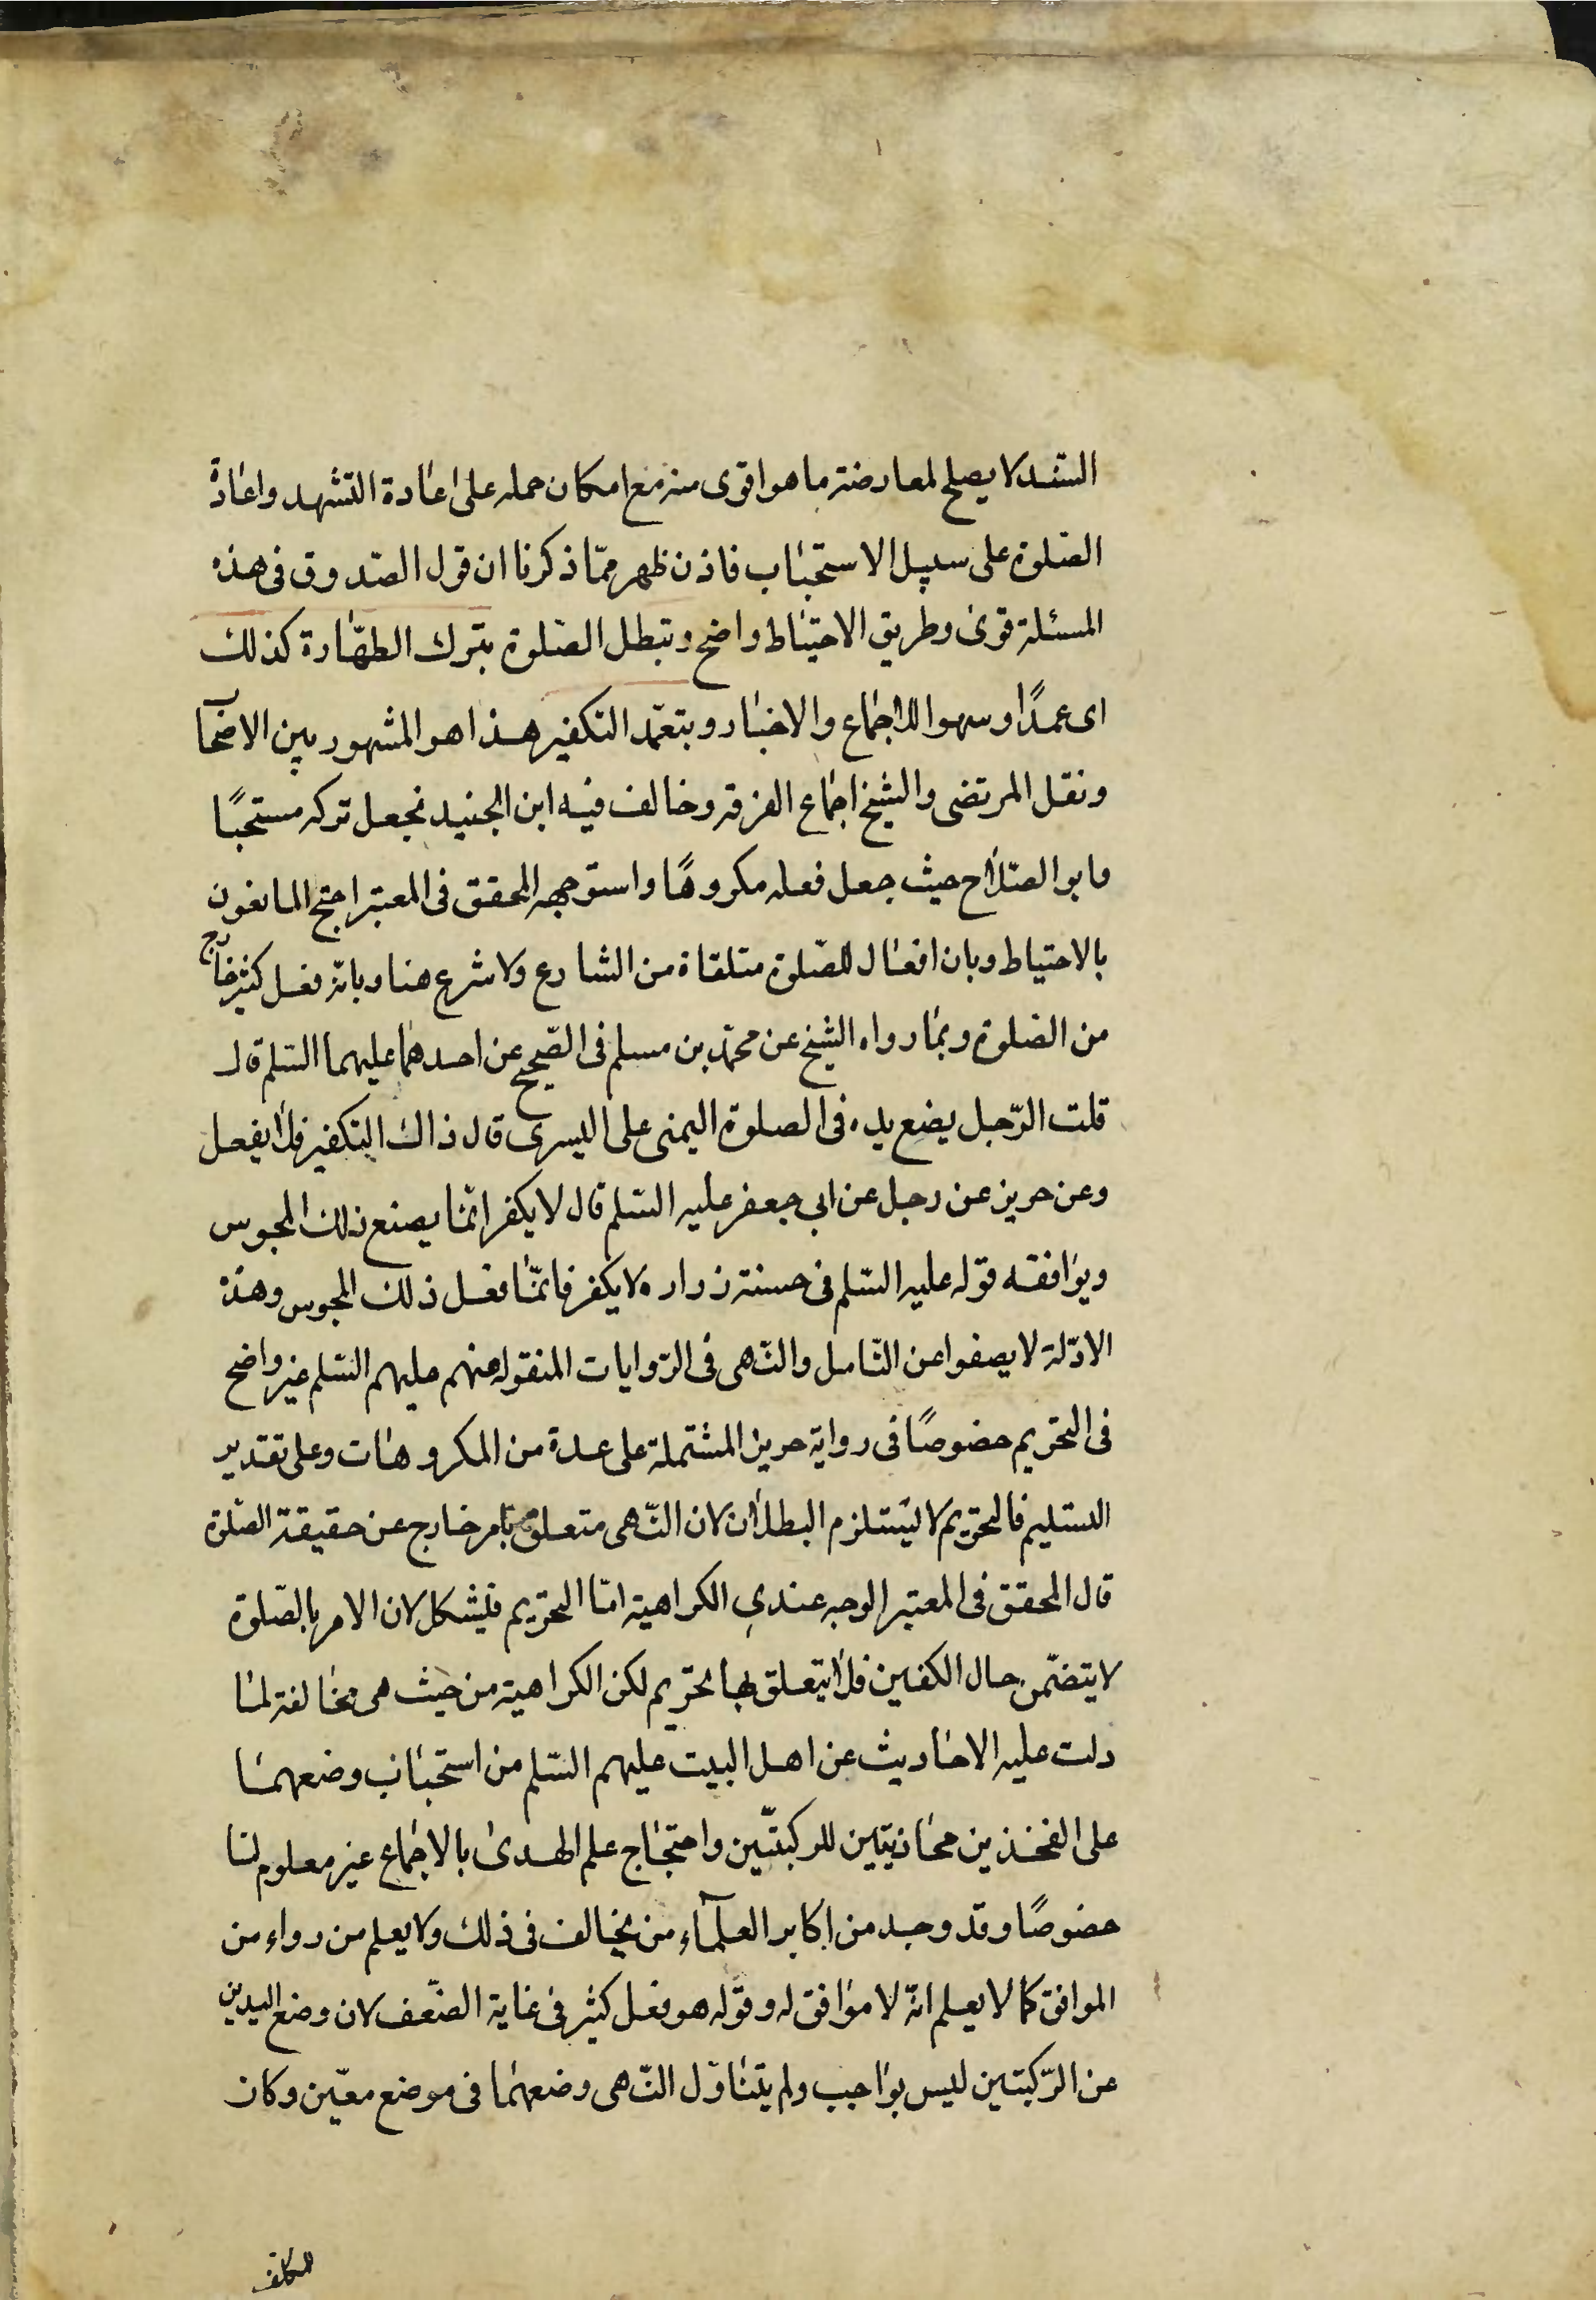 السند لا يصلح لمعارضة ما هو اقوى منه مع امكان حمله على اعادة التشهد واعادة
الصّلوة على سبيل الاستحباب فاذن ظهر ممّا ذكرنا ان قول الصّدوق فى هذه
المسئلة قوىّ وطريق الاحتياط واضح وتبطل الصّلوة بترك الطهّارة كذلك
اى عمدًا وسهوا للاجماع والاخبار وبتعمّد التكفير هذا هو المشهور بين الاصحاب
ونقل المرتضى والشيخ اجماع الفرقة وخالف فيه ابن الجنيد فجعل تركه مستحبًا
وابو الصّلاح حيث جعل فعله مكروهًا واستوجهه المحقق فى المعتبر احتج المانعون
بالاحتياط وبان افعال الصّلوة متلقاة من الشارع ولا شرع هنا وبانّه فعل كثير خارج
من الصّلوة وبما رواه الشيخ عن محمّد بن مسلم فى الصّحيح عن احدهما عليهما السّلم قال
قلت الرّجل يضع يده فى الصلوة اليمنى على اليسرى قال ذاك التكفير فلا يفعل
وعن حريز عن رجل عن ابى جعفر عليه السّلم قال لا يكفر انّما يصنع ذلك المجوس
ويوافقه قوله عليه السّلم فى حسنة زراره لا يكفر فانّما فعل ذلك المجوس وهذه
الادّلة لا يصفوا عن التّامل والنّهى فى الرّوايات المنقوله عنهم عليهم السّلم غير واضح
فى التحريم خصوصًا فى رواية حريز المشتملة على عدة من المكروهات وعلى تقدير
التسليم فالتحريم لا يستلزم البطلان لان النّهى متعلق بامر خارج عن حقيقة الصّلوة
قال المحقق فى المعتبر الوجه عندي الكراهية امّا التحريم فيشكل لان الامر بالصّلوة
لا يتضمّن حال الكفين فلا يتعلق بها تحريم لكن الكراهية من حيث هى مخالفة لما
دلت عليه الاحاديث عن اهل البيت عليهم السّلم من استحباب وضعهما
على الفخذين محاذيتين للركبتّين واحتجاج علم الهدى بالاجماع غير معلوم لنا
خصوصًا وقد وجد من اكابر العلمآء من يخالف فى ذلك ولا يعلم من رواء من
الموافق كما لا يعلم انّه لا موافق له وقوله هو فعل كثير فى غاية الضّعف لان وضع اليدين
عن الرّكبتين ليس بواجب ولم يتناول النّهى وضعهما فى موضع معيّن وكان
للمكلف